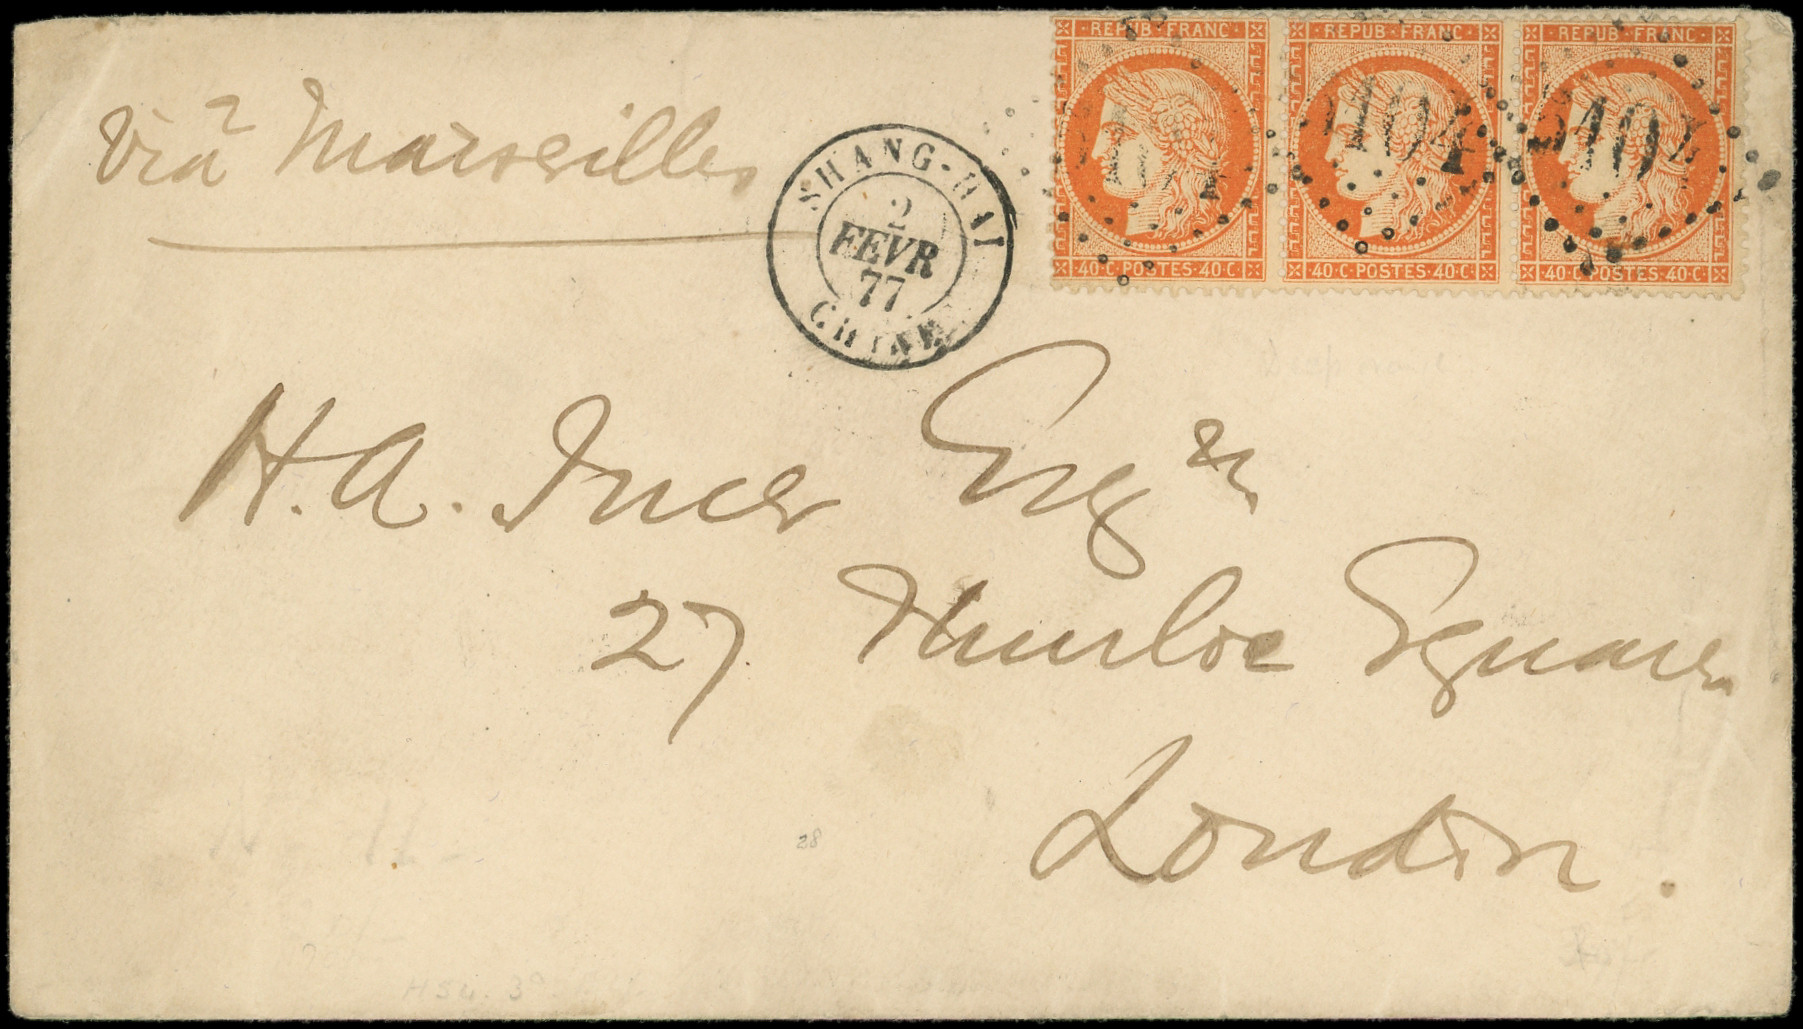 REPUB·FRANC· REPUB·FRANC· REPUB·FRANC·
via Marseilles
5104 5104
SHANG-HAI
2
FEVR
77
CHINE
40·C·POSTES·40·C· 40·C·POSTES·40·C· 40·C·POSTES·40·C·
H. A. Esqre
27 Thurloe Square
London.
28